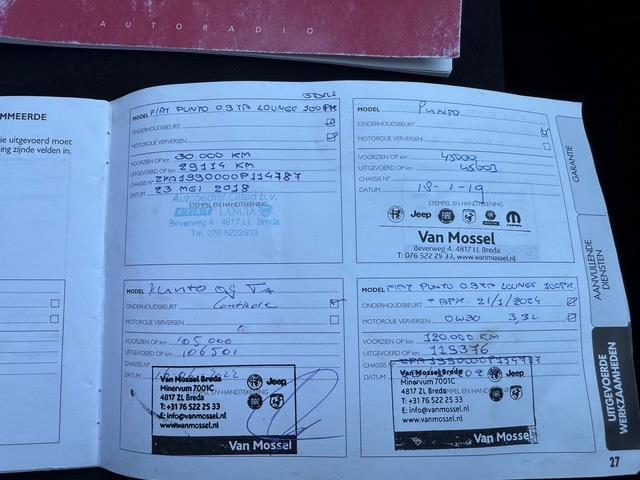 AUTORADIO
MMEERDE
ie uitgevoerd moet
ing zijnde velden in.
5DRS
MODEL FIAT PUNTO 0.9 TA LOUNGE 100PK
ONDERHOUDSBEURT
MOTOROLIE VERVERSEN
VOORZIEN OP km 30.000 KM
UITGEVOERD OP km 29114 KM
CHASSIS N° ZFA1990000P114787
DATUM 23 MEI 2018
STEMPEL EN HANDTEKENING
Autobedrijf Otten b.v.
FIAT LANCIA
Beverweg 4 - 4817 LL Breda
Tel. 076-5222533
MODEL Punto
ONDERHOUDSBEURT
MOTOROLIE VERVERSEN
VOORZIEN OP km 45000
UITGEVOERD OP km 45003
CHASSIS N°
DATUM 18-1-19
STEMPEL EN HANDTEKENING
Jeep
Van Mossel
Beverweg 4, 4817 LL Breda
T: 076 522 25 33, www.vanmossel.nl
MODEL Punto 09 TA
ONDERHOUDSBEURT Controle
MOTOROLIE VERVERSEN
VOORZIEN OP km 105.000
UITGEVOERD OP km 106501
CHASSIS N°
DATUM 2022
Van Mossel Breda
Minervum 7001C
4817 ZL Breda
T: +31 76 522 25 33
E: info@vanmossel.nl
www.vanmossel.nl
Jeep
Van Mossel
MODEL FIAT PUNTO 0.9 TA LOUNGE 100PK
ONDERHOUDSBEURT + APK. 21/1/2024
MOTOROLIE VERVERSEN 0W30 3,3L
VOORZIEN OP km 120.000 KM
UITGEVOERD OP km 115376
CHASSIS N° ZFA1990000P114787
DATUM
Van Mossel Breda
Minervum 7001C
4817 ZL Breda
T: +31 76 522 25 33
E: info@vanmossel.nl
www.vanmossel.nl
Jeep
Van Mossel
GARANTIE
AANVULLENDE
DIENSTEN
UITGEVOERDE
WERKZAAMHEDEN
27